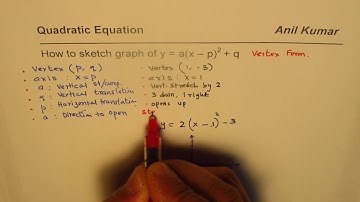 Quadratic Equation
Anil Kumar
How to sketch graph of y = a(x – p)² + q Vertex Form.
• Vertex (p, q)
• axis : x = p
• a : Vertical st/comp.
• q : Vertical translation
• p : Horizontal translation
• a : Direction to open
- Vertex (1, -3)
- axis : x = 1
- Vert. Stretch by 2
- 3 down, 1 right
- opens up
y = 2(x - 1)² - 3